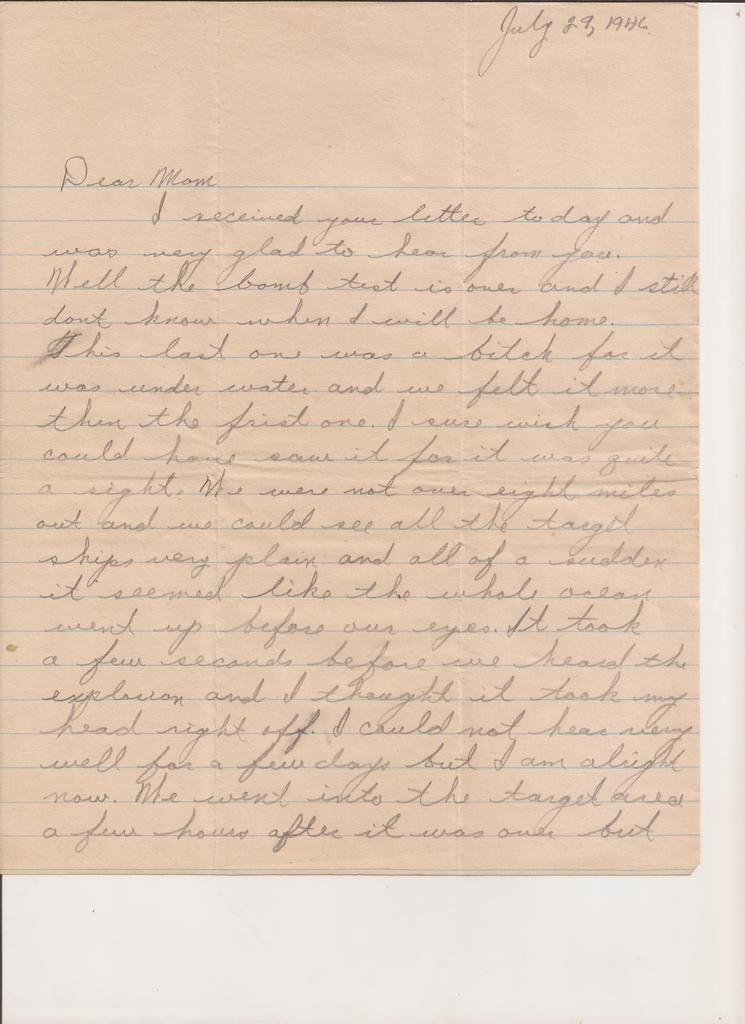 July 29, 1946.
Dear Mom
I received your letter today and
was very glad to hear from you.
Well the bomb test is over and I still
dont know when I will be home.
This last one was a bitch for it
was under water and we felt it more
then the frist one. I sure wish you
could have saw it for it was quite
a sight. We were not over eight miles
out and we could see all the target
ships very plain and all of a sudden
it seemed like the whole ocean
went up before our eyes. It took
a few seconds before we heard the
explosion and I thought it took my
head right off. I could not hear very
well for a few days but I am alright
now. We went into the target area
a few hours after it was over but